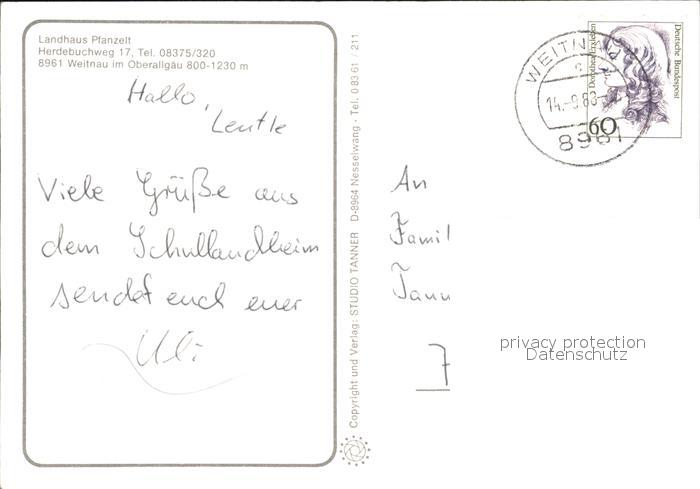 Landhaus Pfanzelt
Herdebuchweg 17, Tel. 08375/320
8961 Weitnau im Oberallgäu 800-1230 m
Hallo,
Leutle
Viele Grüße aus
dem Schullandheim
sendet euch euer
Uli
Copyright und Verlag: STUDIO TANNER D-8964 Nesselwang - Tel. 0 83 61 / 211
WEITNAU
14.-9.88
8961
Deutsche Bundespost
60
An
Famil
Tann
7
privacy protection
Datenschutz